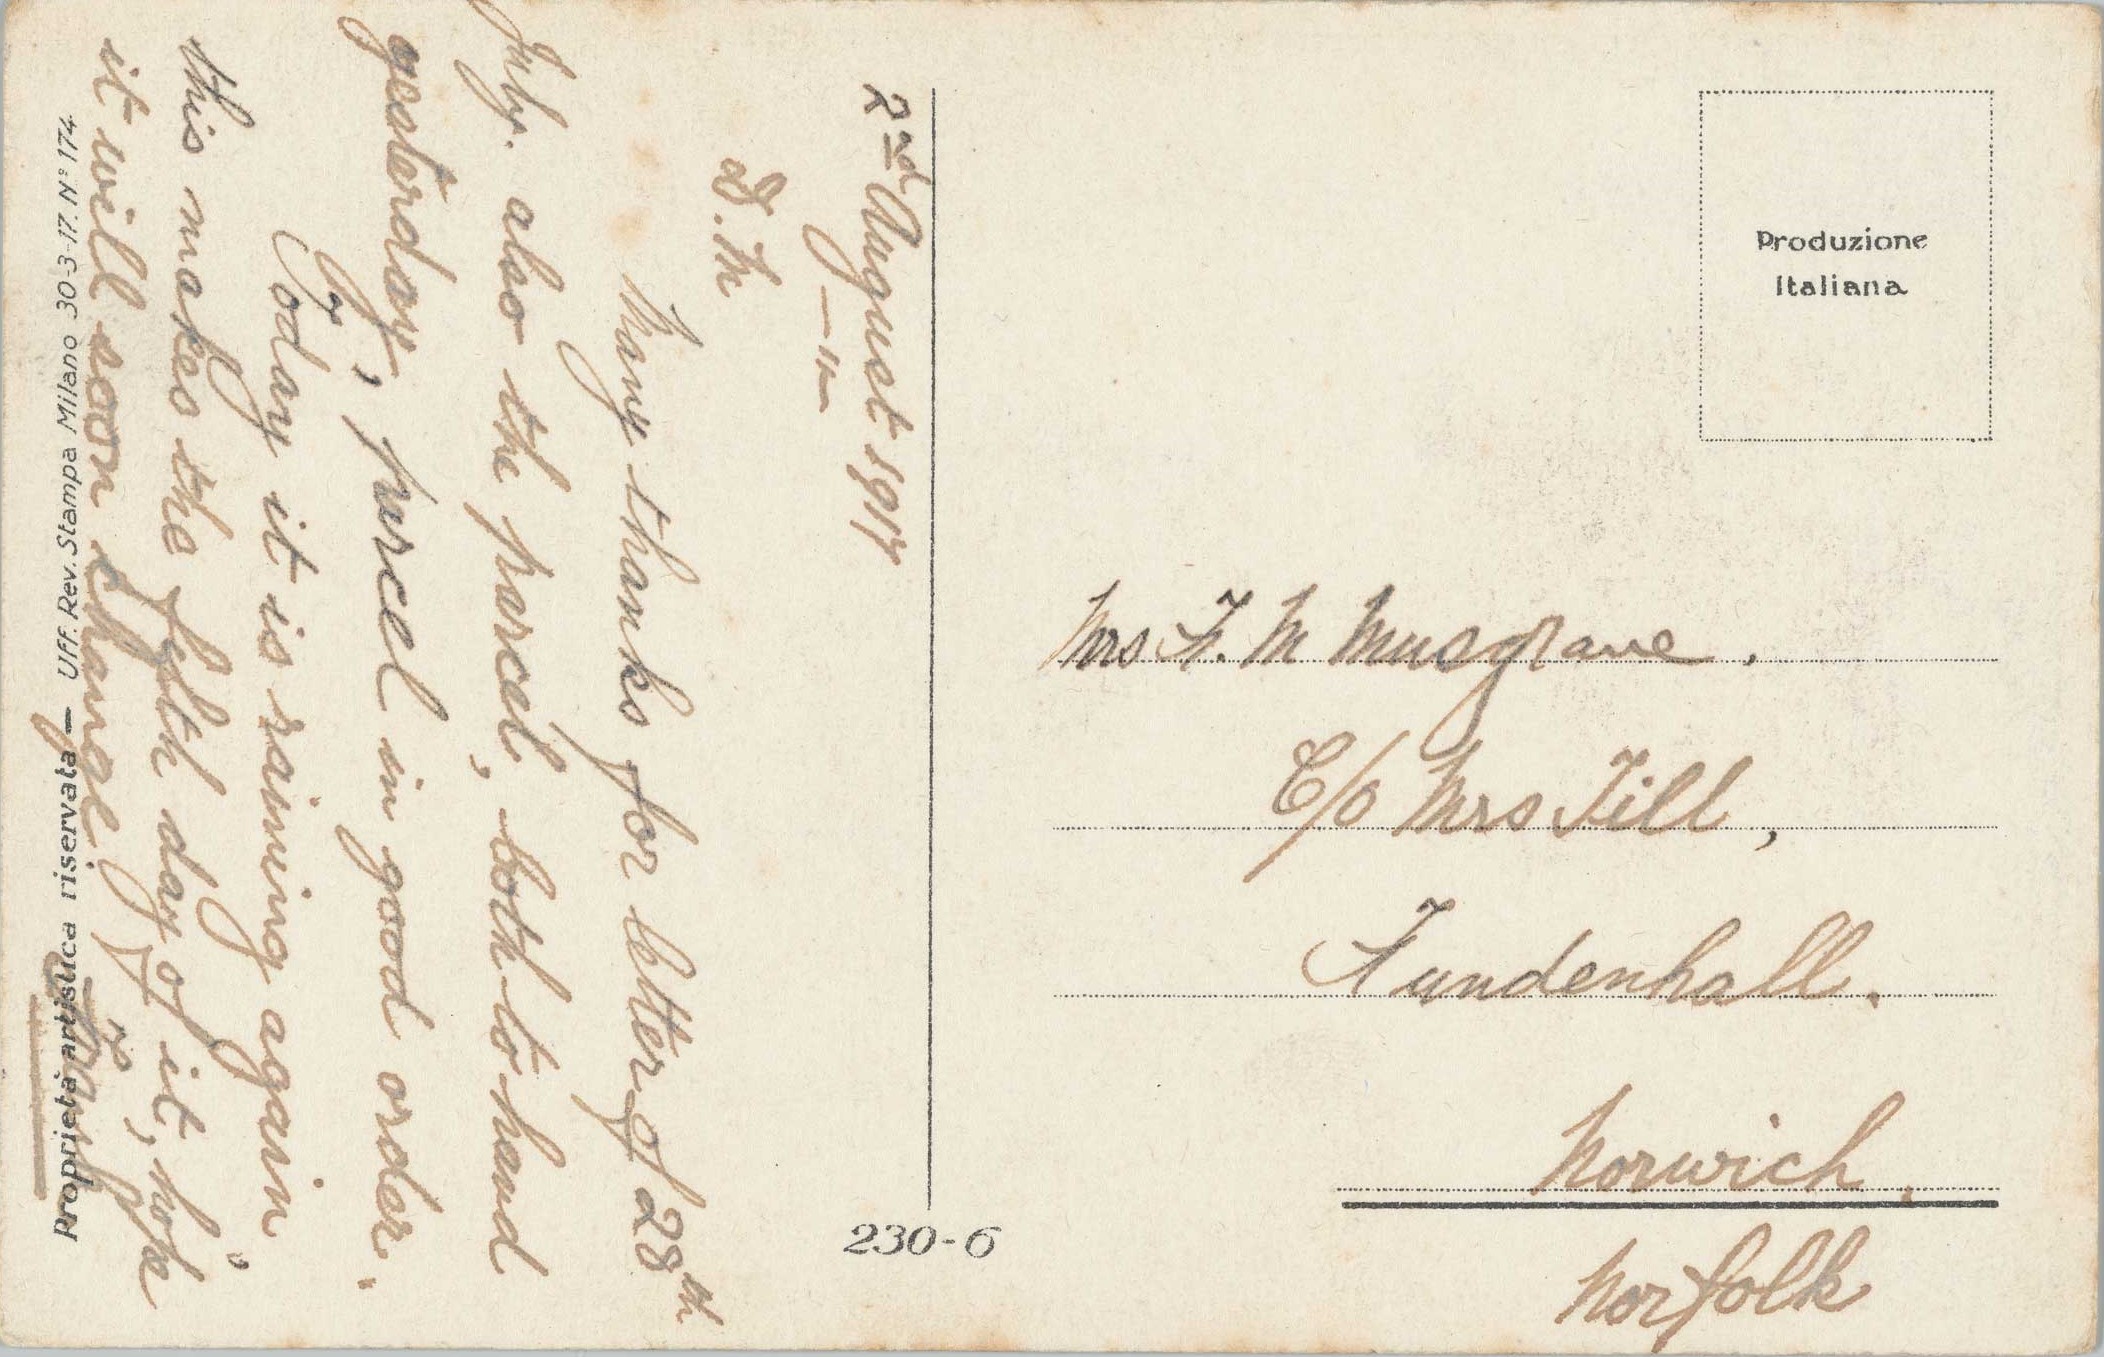 2nd August 1917
— " —
D.M
Many thanks for letter of 28th
July. also the parcel, both to hand
yesterday, parcel in good order.
Today it is raining again
this makes the fifth day of it, hope
it will soon change.
Proprietà artistica riservata — Uff. Rev. Stampa Milano 30-3-17. N° 174
230-6
Produzione
Italiana
Mrs F. M Musgrave.
C/o Mrs Till,
Fundenhall.
Norwich.
Norfolk